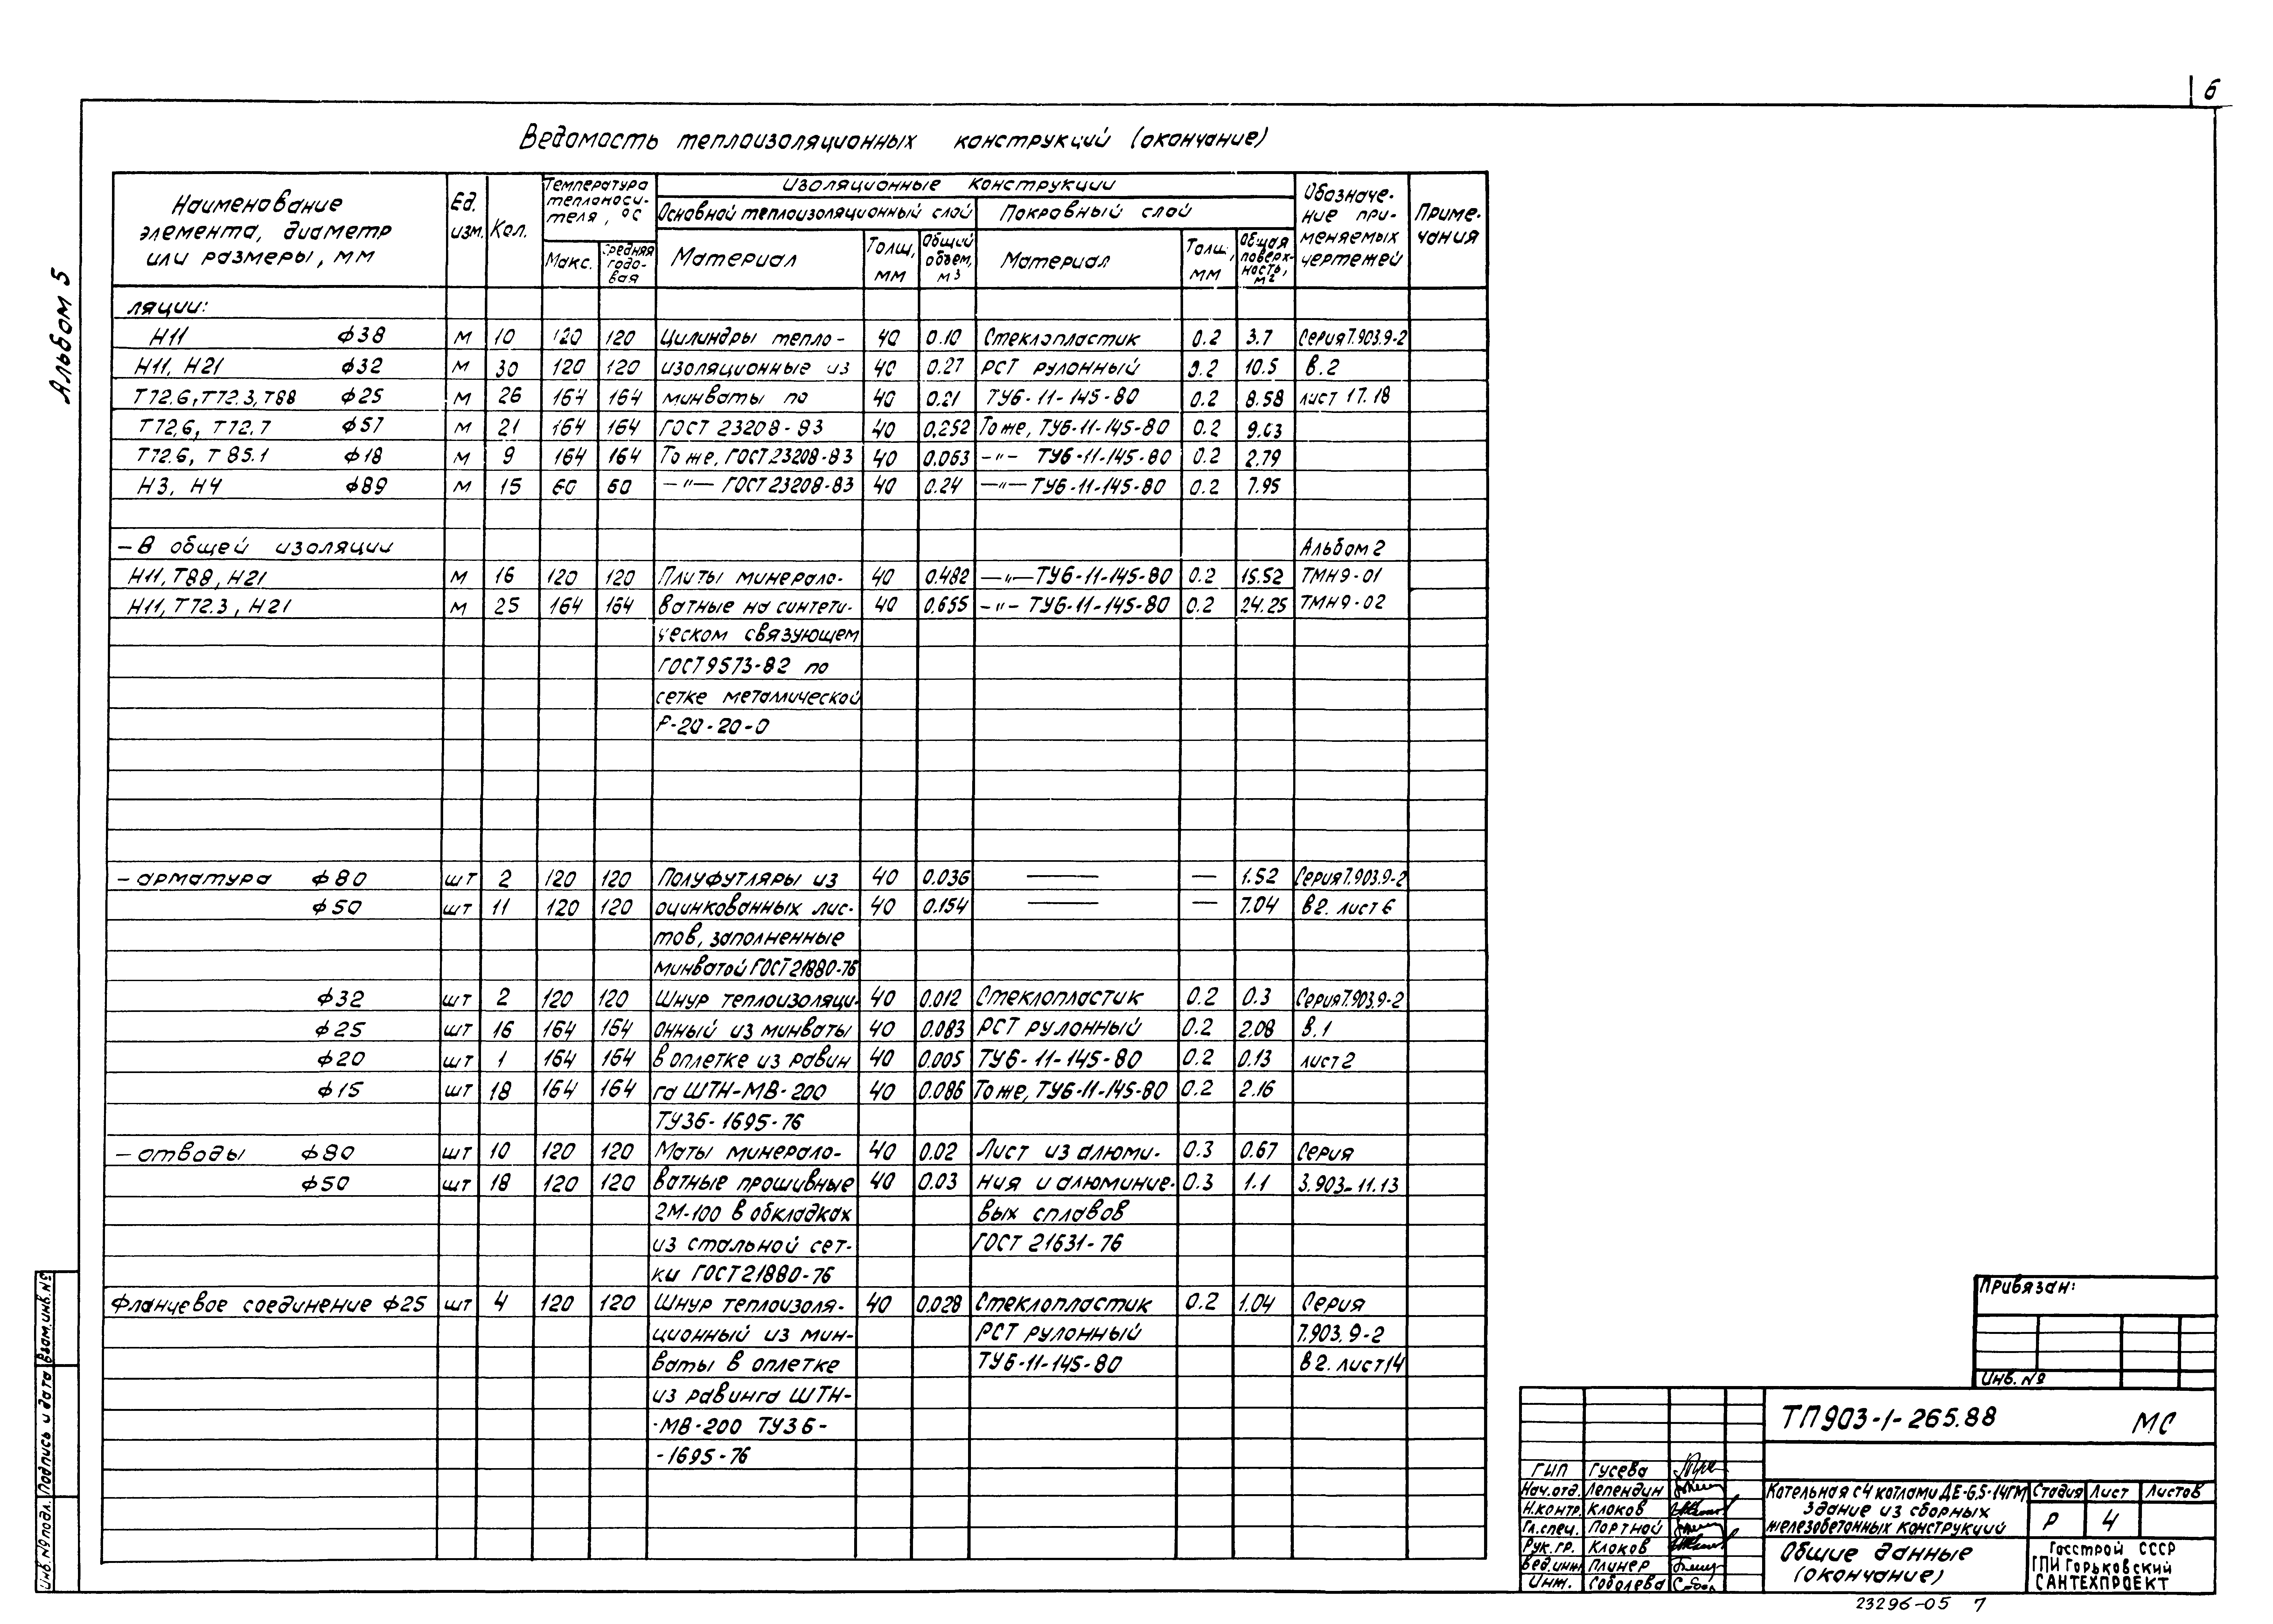 6
Альбом 5
Ведомость теплоизоляционных конструкций (окончание)
Наименование элемента, диаметр или размеры, мм
Ед. изм.
Кол.
Температура теплоноси-теля, °С
Макс.
Средняя годо-вая
Изоляционные конструкции
Основной теплоизоляционный слой
Покровный слой
Материал
Толщ, мм
Общий объем, м³
Материал
Толщ, мм
Общая поверх-ность, м²
Обозначе-ние при-меняемых чертежей
Приме-чания
ляции:
Н11 ф38 м 10 120 120 Цилиндры тепло- 40 0.10 Стеклопластик 0.2 3.7 Серия 7.903.9-2
Н11, Н21 ф32 м 30 120 120 изоляционные из 40 0.27 РСТ рулонный 0.2 10.5 в.2
Т72.6, Т72.3, Т88 ф25 м 26 164 164 минваты по 40 0.21 ТУ6-11-145-80 0.2 8.58 лист 17.18
Т72.6, Т72.7 ф57 м 21 164 164 ГОСТ 23208-83 40 0.252 То же, ТУ6-11-145-80 0.2 9.03
Т72.6, Т85.1 ф18 м 9 164 164 То же, ГОСТ 23208-83 40 0.063 —"— ТУ6-11-145-80 0.2 2.79
Н3, Н4 ф89 м 15 60 60 —"— ГОСТ 23208-83 40 0.24 —"— ТУ6-11-145-80 0.2 7.95
- В общей изоляции Альбом 2
Н11, Т88, Н21 м 16 120 120 Плиты минерало- 40 0.482 —"— ТУ6-11-145-80 0.2 15.52 ТМН9-01
Н11, Т72.3, Н21 м 25 164 164 ватные на синтети- 40 0.655 —"— ТУ6-11-145-80 0.2 24.25 ТМН9-02
ческом связующем
ГОСТ 9573-82 по
сетке металлической
Р-20-20-0
- арматура ф80 шт 2 120 120 Полуфутляры из 40 0.036 — — 1.52 Серия 7.903.9-2
ф50 шт 11 120 120 оцинкованных лис- 40 0.154 — — 7.04 в2. лист 6
тов, заполненные
минватой ГОСТ 21880-76
ф32 шт 2 120 120 Шнур теплоизоляци- 40 0.012 Стеклопластик 0.2 0.3 Серия 7.903.9-2
ф25 шт 16 164 164 онный из минваты 40 0.083 РСТ рулонный 0.2 2.08 в.1
ф20 шт 1 164 164 в оплетке из равин 40 0.005 ТУ6-11-145-80 0.2 0.13 лист 2
ф15 шт 18 164 164 га ШТН-МВ-200 40 0.086 То же, ТУ6-11-145-80 0.2 2.16
ТУ36-1695-76
- отводы ф80 шт 10 120 120 Маты минерало- 40 0.02 Лист из алюми- 0.3 0.67 Серия
ф50 шт 18 120 120 ватные прошивные 40 0.03 ния и алюминие- 0.3 1.1 3.903-11.13
2М-100 в обкладках вых сплавов
из стальной сет- ГОСТ 21631-76
ки ГОСТ 21880-76
Фланцевое соединение ф25 шт 4 120 120 Шнур теплоизоля- 40 0.028 Стеклопластик 0.2 1.04 Серия
ционный из мин- РСТ рулонный 7.903.9-2
ваты в оплетке ТУ6-11-145-80 в2. лист 14
из равинга ШТН-
-МВ-200 ТУ36-
-1695-76
Привязан:
Инв. №
ТП903-1-265.88 МС
ГИП Гусева
Нач.отд. Лепендин
Н.контр. Клоков
Гл.спец. Портной
Рук.гр. Клоков
Вед.инж Плинер
Инж. Соболева
Котельная с 4 котлами ДЕ-6,5-14ГМ
Здание из сборных
железобетонных конструкций
Стадия Лист Листов
Р 4
Общие данные
(окончание)
Госстрой СССР
ГПИ Горьковский
САНТЕХПРОЕКТ
Инв. № подл. Подпись и дата Взам.инв.№
23296-05 7